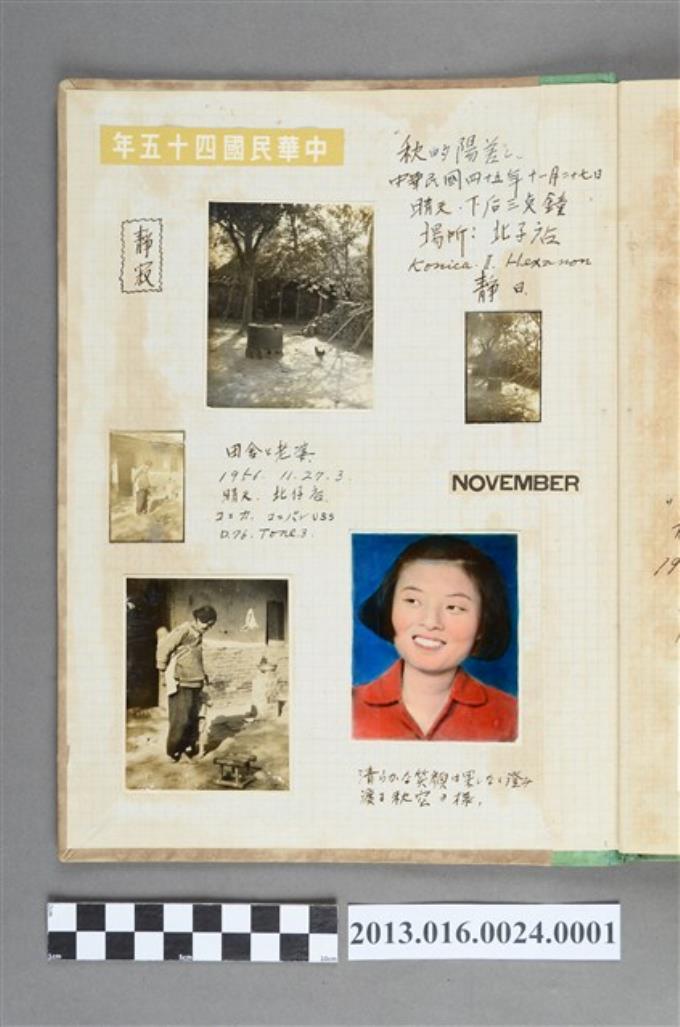 年五十四國民華中
"秋的陽差し
中華民國四十五年十一月二十七日
晴天.下后三点鐘
場所:北子店
Konica.Ⅱ.Hexanon
靜日.
靜寂
田舍の老婆
1956. 11.27.3.
晴天. 北仔店.
コニカ. コニパン USS
D.76. Tone.3.
NOVEMBER
清らかな笑顔は果しなく澄み
渡る秋空の様.
19
2013.016.0024.0001